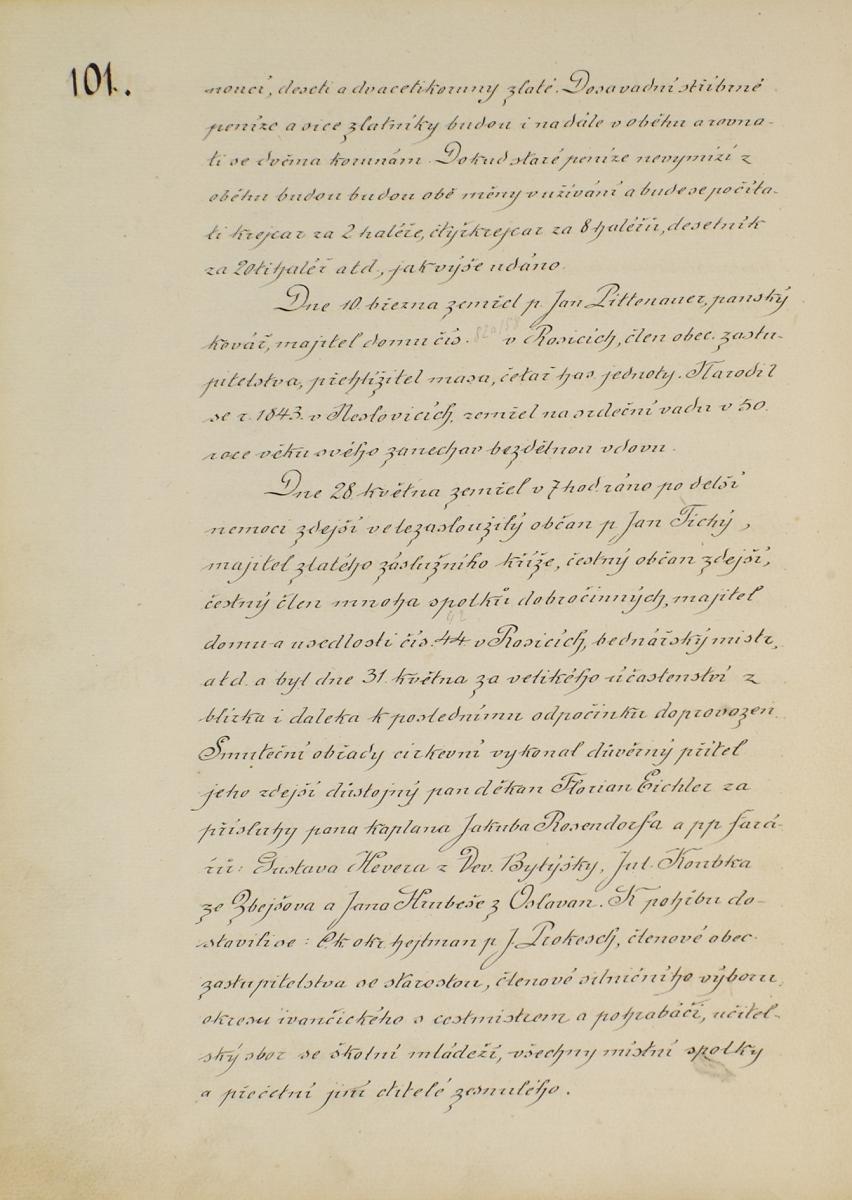 101.
noucí, deseti a dvacetikoruny zlaté. Dosavadní stříbrné
peníze a sice zlatníky budou i nadále v oběhu a rovna-
ti se dvěma korunám. Dokud staré peníze nevymizí z
oběhu budou budou obě měny v užívání a bude se počíta-
ti krejcar za 2 haléře, čtyřkrejcar za 8 haléřů, desetník
za 20tihaléř atd., jak výše udáno.
Dne 10. března zemřel p. Jan Pittenauer, panský
kovář, majitel domu čís. v Rosicích, člen obec. zastu-
pitelstva, přehlížitel masa, četař has. jednoty. Narodil
se r. 1843. v Neslovicích, zemřel na srdeční vadu v 50.
roce věku svého zanechav bezdětnou vdovu.
Dne 28. května zemřel v 7 hod. ráno po delší
nemoci zdejší velezasloužilý občan p. Jan Tichý,
majitel zlatého záslužního kříže, čestný občan zdejší,
čestný člen mnoha spolků dobročinných, majitel
domu a usedlosti čís. 44 v Rosicích, bednářský mistr,
atd. a byl dne 31. května za velikého účastenství z
blízka i daleka k poslednímu odpočinku doprovozen.
Smuteční obřady církevní vykonal důvěrný přítel
jeho zdejší důstojný pan děkan Florian Eichler za
přísluhy pana kaplana Jakuba Rosendorfa a pp. fará-
řů: Gustava Hevera z Vev. Bytýšky, Jul. Koubka
ze Zbejšova a Jana Hrubeše z Oslavan. K pohřbu do-
stavili se: C.k. okr. hejtman p. J. Prokesch, členové obec.
zastupitelstva se starostou, členové silničního výboru
okresu ivančického s cestmistrem a pohrabáči, učitel-
ský sbor se školní mládeží, všechny místní spolky
a přečetní jiní ctitelé zesnulého.